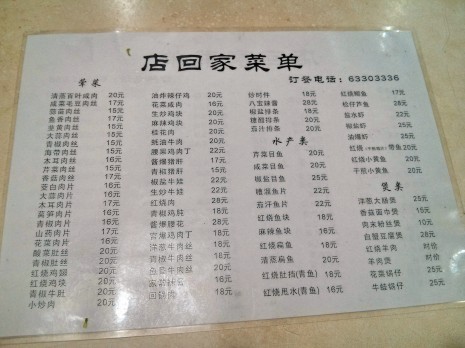 店回家菜单
订餐电话：63303336
荤菜
清蒸百叶咸肉 20元
咸菜毛豆肉丝 17元
茄菜肉丝 16元
鱼香肉丝 17元
韭黄肉丝 17元
大蒜肉丝 17元
青椒肉丝
海带肉丝 15元
木耳肉丝 16元
芹菜肉丝
香菇肉丝 17元
茭白肉片 16元
大蒜肉片
木耳肉片
莴笋肉片 16元
青椒肉片
山药肉片 17元
花菜肉片 16元
酸菜肚丝
红烧鸡翅
红烧鸡块 20元
青椒牛肚 20元
小炒肉 20元
油炸矮仔鸡 20元
花菜咸肉 16元
生炒鸡块 20元
麻辣鸡块 20元
桂花肉 20元
蚝油牛肉 20元
腰果鸡肉丁 22元
酱爆猪肝 17元
青椒猪肝 17元
椒盐牛蛙 22元
生炒牛蛙 22元
红烧肉 28元
青椒鸡肫 18元
酱爆腰花 28元
宫爆鸡肉丁 18元
洋葱牛肉丝 18元
青椒牛肉丝 18元
回锅肉 18元
炒时件 18元
八宝辣酱 28元
椒盐排条 18元
糖醋排条 20元
茄汁排条 20元
水产类
芹菜目鱼 20元
咸菜目鱼 20元
椒盐目鱼 20元
糟溜鱼片 22元
茄汁鱼片 22元
红烧鱼块 18元
麻辣鱼块 18元
红烧扁鱼 18元
清蒸扁鱼 20元
红烧肚档(青鱼) 18元
红烧甩水(青鱼) 16元
红烧鲫鱼 17元
松仔芦鱼 28元
盐水虾 22元
椒盐虾 25元
油爆虾 25元
红烧小黄鱼 20元
干煎小黄鱼 20元
煲类
洋葱大肠煲 25元
香菇面巾煲 25元
肉末粉丝煲 18元
白蟹豆腐煲 28元
红烧羊肉 时价
羊肉煲 时价
花菜锅仔 25元
牛筋锅仔 25元